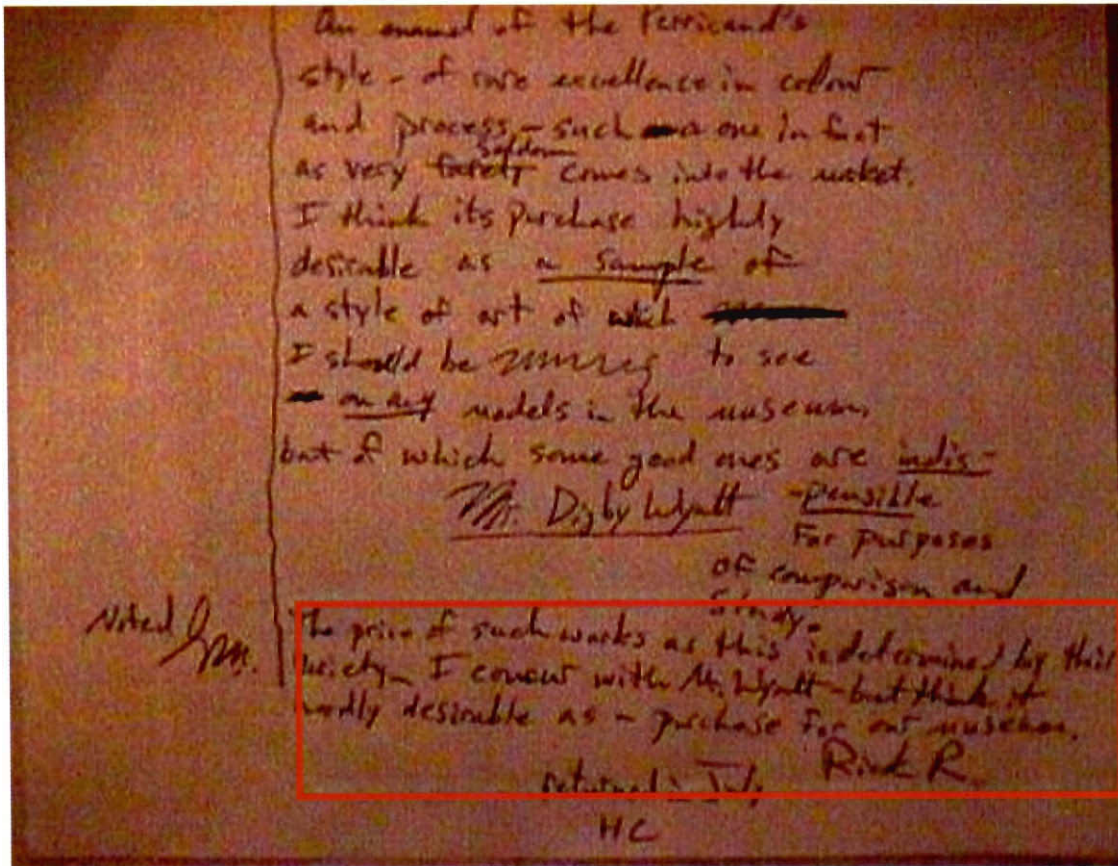 An enamel of the Perricand's
style - of rare excellence in colour
and process, - such a one in fact
as very seldom comes into the market.
I think its purchase highly
desirable as a sample of
a style of art of which
I should be to see
on any models in the museum,
but of which some good ones are indis-
Mr. Digby Wyatt -pensible
For purposes
of comparison and
study.
Noted
The price of such works as this is determined by their
I concur with Mr. Wyatt - but think it
desirable as - purchase for our museum.
Rick R.
returned in July
HC